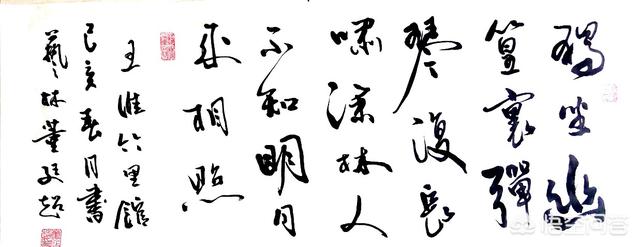 獨坐幽
篁裏彈
琴復長
嘯深林人
不知明月
來相照
王維竹里館
己亥春月書
藝林董廷超
悟空问答